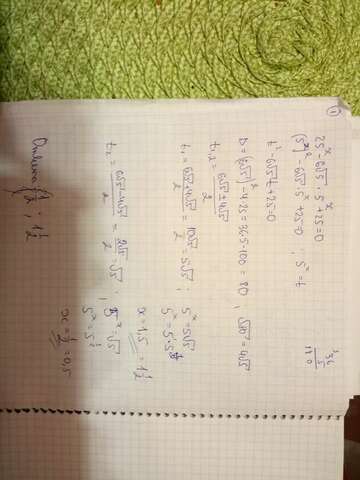 ①
25ˣ - 6√5 · 5ˣ + 25 = 0
(5ˣ)² - 6√5 · 5ˣ + 25 = 0 ; 5ˣ = t
t² - 6√5 t + 25 = 0
D = (6√5)² - 4·25 = 36·5 - 100 = 80 ; √80 = 4√5
t₁,₂ = (6√5 ± 4√5)/2
t₁ = (6√5 + 4√5)/2 = 10√5/2 = 5√5 ;
5ˣ = 5√5
x = 1,5 = 1 1/2
t₂ = (6√5 - 4√5)/2 = 2√5/2 = √5 ;
5ˣ = √5
x = 1/2 = 0,5
36
5
180